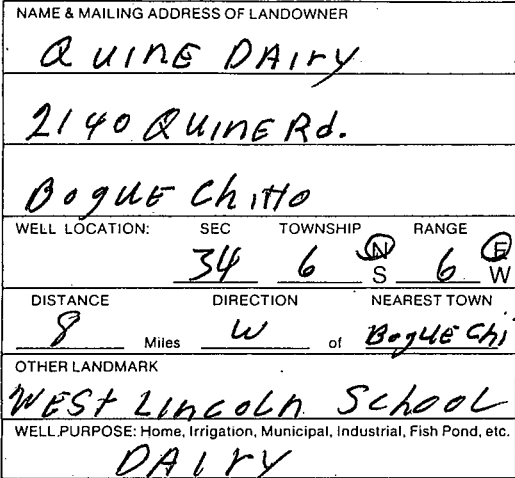 NAME & MAILING ADDRESS OF LANDOWNER
QUINE DAIRY
2140 QUINE Rd.
BOGUE Chitto
WELL LOCATION: SEC TOWNSHIP RANGE
34 6 N S 6 E W
DISTANCE DIRECTION NEAREST TOWN
8 Miles W of BogUE Chi
OTHER LANDMARK
WESt Lincoln School
WELL PURPOSE: Home, Irrigation, Municipal, Industrial, Fish Pond, etc.
DAIrY